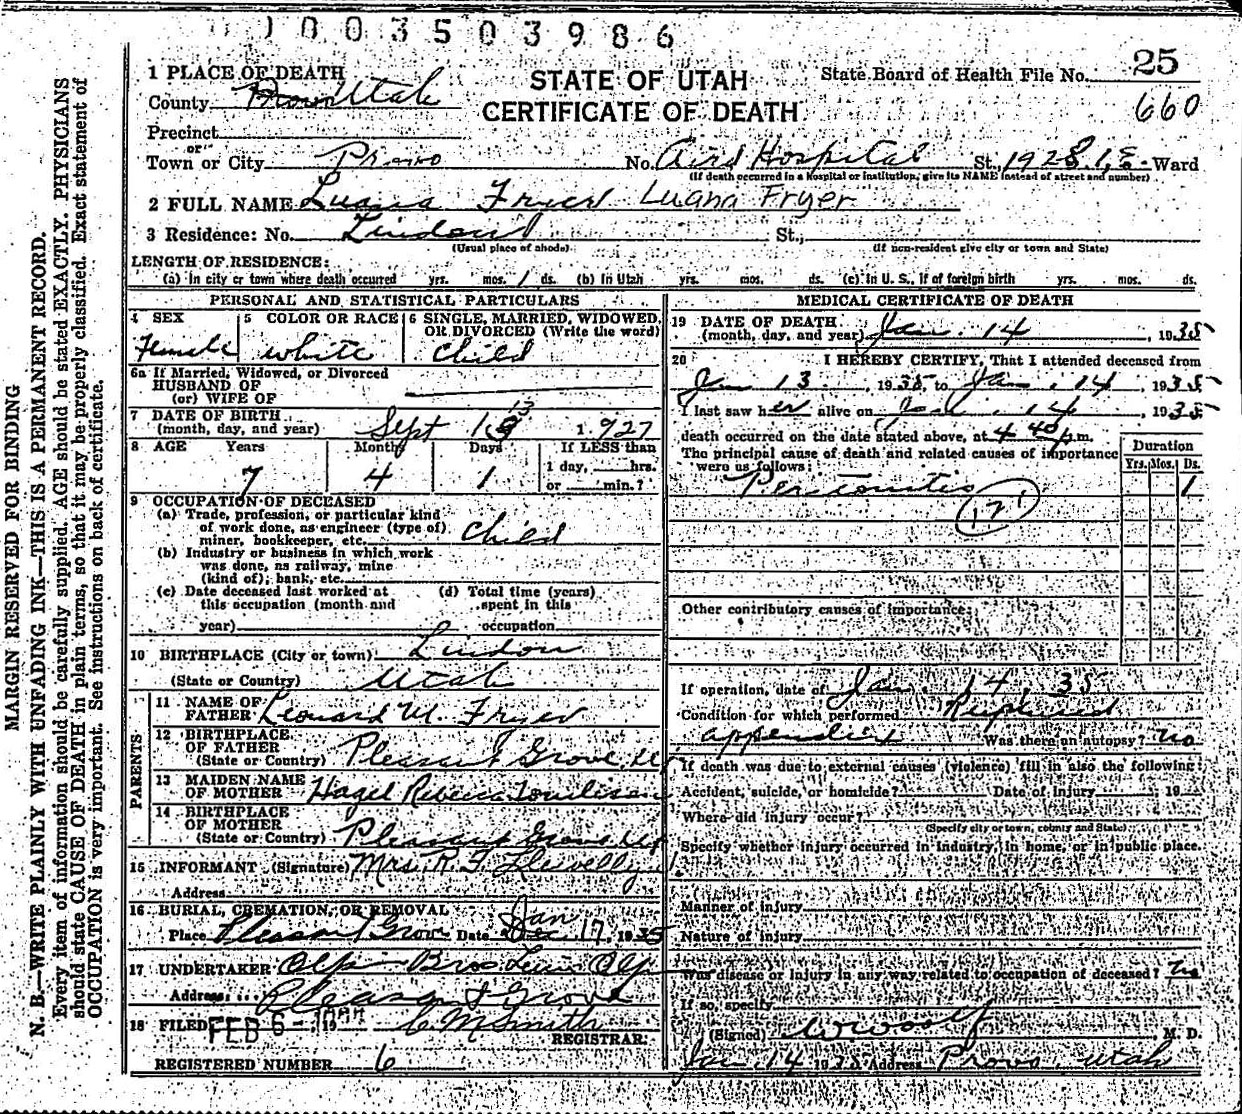 1003503986
1 PLACE OF DEATH
STATE OF UTAH
CERTIFICATE OF DEATH
State Board of Health File No. 25
660
County Utah
Precinct
or
Town or City Provo No. Aird Hospital St., Ward
(If death occurred in a hospital or institution, give its NAME instead of street and number)
2 FULL NAME Luana Fryer Luana Fryer
3 Residence: No. Lindon St.,
(Usual place of abode) (If non-resident give city or town and State)
LENGTH OF RESIDENCE:
(a) In city or town where death occurred yrs. mos. 1 ds. (b) In Utah yrs. mos. ds. (c) In U. S., if of foreign birth yrs. mos. ds.
PERSONAL AND STATISTICAL PARTICULARS
4 SEX Female
5 COLOR OR RACE white
6 SINGLE, MARRIED, WIDOWED, OR DIVORCED (Write the word) Child
6a If Married, Widowed, or Divorced
HUSBAND OF
(or) WIFE OF
7 DATE OF BIRTH
(month, day, and year) Sept 13 1927
8 AGE Years 7 Months 4 Days 1 If LESS than
1 day, hrs.
or min.?
9 OCCUPATION OF DECEASED
(a) Trade, profession, or particular kind
of work done, as engineer (type of)
miner, bookkeeper, etc. Child
(b) Industry or business in which work
was done, as railway, mine
(kind of); bank, etc.
(c) Date deceased last worked at
this occupation (month and
year)
(d) Total time (years)
spent in this
occupation
10 BIRTHPLACE (City or town) Lindon
(State or Country) Utah
PARENTS
11 NAME OF
FATHER Leonard M. Fryer
12 BIRTHPLACE
OF FATHER
(State or Country) Pleasant Grove, Ut
13 MAIDEN NAME
OF MOTHER Hazel
14 BIRTHPLACE
OF MOTHER
(State or Country) Pleasant Grove Ut
15 INFORMANT (Signature) Mrs. R. F.
Address
16 BURIAL, CREMATION, OR REMOVAL Jan
Place Pleasant Grove Date Dec 17, 1935
17 UNDERTAKER Bros
Address Pleasant Grove
18 FILED FEB 6 - 19 C M Smith
REGISTRAR
REGISTERED NUMBER 6
MEDICAL CERTIFICATE OF DEATH
19 DATE OF DEATH
(month, day, and year) Jan. 14, 1935
20 I HEREBY CERTIFY, That I attended deceased from
Jan 13, 1935 to Jan. 14, 1935
I last saw her alive on Jan. 14, 1935
death occurred on the date stated above, at 4 40 p.m.
The principal cause of death and related causes of importance
were as follows:
Duration
Yrs. Mos. Ds.
Peritonitis 1
121
Other contributory causes of importance:
If operation, date of Jan. 14, 35
Condition for which performed Ruptured
appendix Was there an autopsy? no
If death was due to external causes (violence) fill in also the following:
Accident, suicide, or homicide? Date of injury , 19
Where did injury occur?
(Specify city or town, county and State)
Specify whether injury occurred in industry, in home, or in public place.
Manner of injury
Nature of injury
Was disease or injury in any way related to occupation of deceased? no
If so, specify
(Signed) M. D.
Jan 14 1935 Address Provo, Utah
MARGIN RESERVED FOR BINDING
N. B.—WRITE PLAINLY WITH UNFADING INK—THIS IS A PERMANENT RECORD.
Every item of information should be carefully supplied. AGE should be stated EXACTLY. PHYSICIANS
should state CAUSE OF DEATH in plain terms, so that it may be properly classified. Exact statement of
OCCUPATION is very important. See instructions on back of certificate.